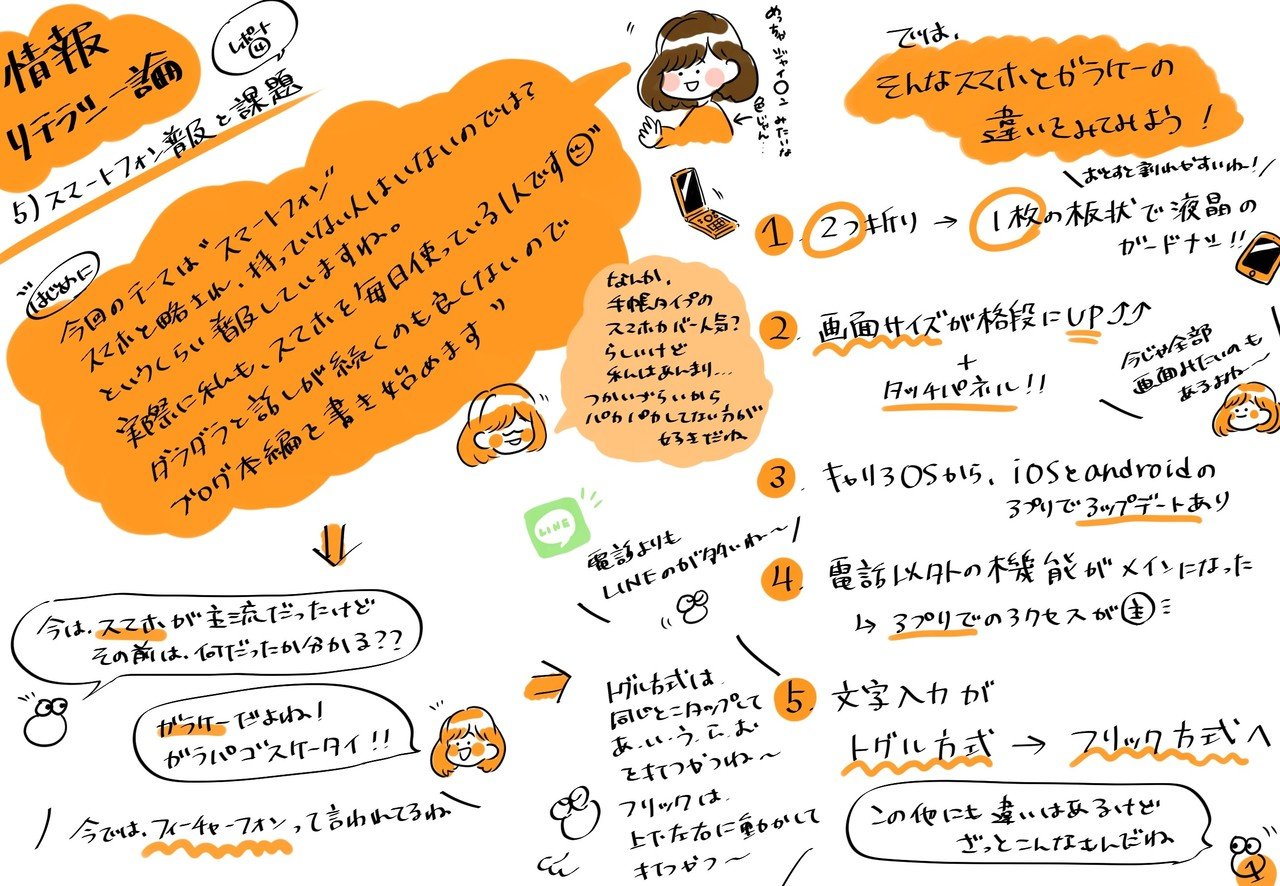 情報
リテラシー論
レポート
④
5)スマートフォン普及と課題
はじめに
今回のテーマは"スマートフォン"
スマホと略され、持っていない人はいないのでは?
というくらい普及していますね。
実際に私も、スマホを毎日使っている1人です
ダラダラと話しが続くのも良くないので
ブログ本編と書き始めます"
めっちゃ
ジャイ〇ンみたいな
色じゃん…
なんか、
手帳タイプの
スマホカバー人気?
らしいけど
私はあんまり…
つかいづらいから
パカパカしてない方が
好きだね
今は、スマホが主流だったけど
その前は、何だったか分かる??
ガラケーだよね!
ガラパゴスケータイ!!
今では、フィーチャーフォンって言われてるね
では、
そんなスマホとガラケーの
違いをみてみよう!
1. 2つ折り → 1枚の板状で液晶の
ガードナシ!!
おとすと割れやすいね!
2. 画面サイズが格段にUP↑↑
+
タッチパネル!!
今じゃ全部
画面みたいのも
あるよね〜
3. キャリアOSから、iOSとandroidの
アプリでアップデートあり
4. 電話以外の機能がメインになった
↳ アプリでのアクセスが主
LINE
電話よりも
LINEのが多いね〜
5. 文字入力が
トグル方式 → フリック方式へ
トグル方式は、
同じとこタップして
あ、い、う、え、お
を打つやつね〜
フリックは、
上下左右に動かして
打つやつ〜
この他にも違いはあるけど
ざっとこんなもんだね
1